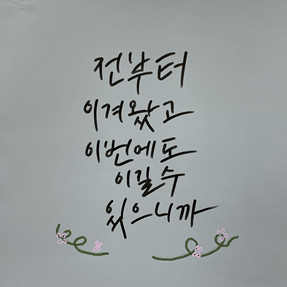 전부터
이겨왔고
이번에도
이길수
있으니까